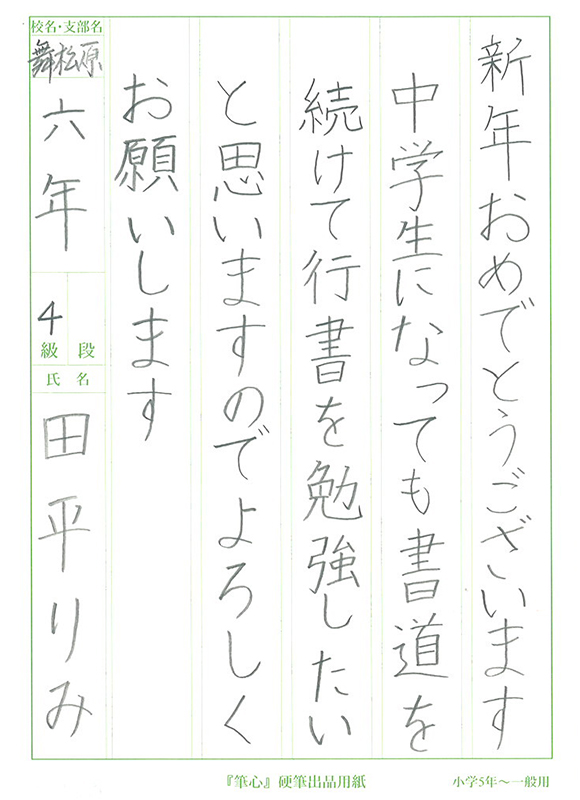 新年おめでとうございます
中学生になっても書道を
続けて行書を勉強したい
と思いますのでよろしく
お願いします
校名・支部名
舞松原
六年
4
級 段
氏 名
田平りみ
『筆心』硬筆出品用紙
小学5年〜一般用